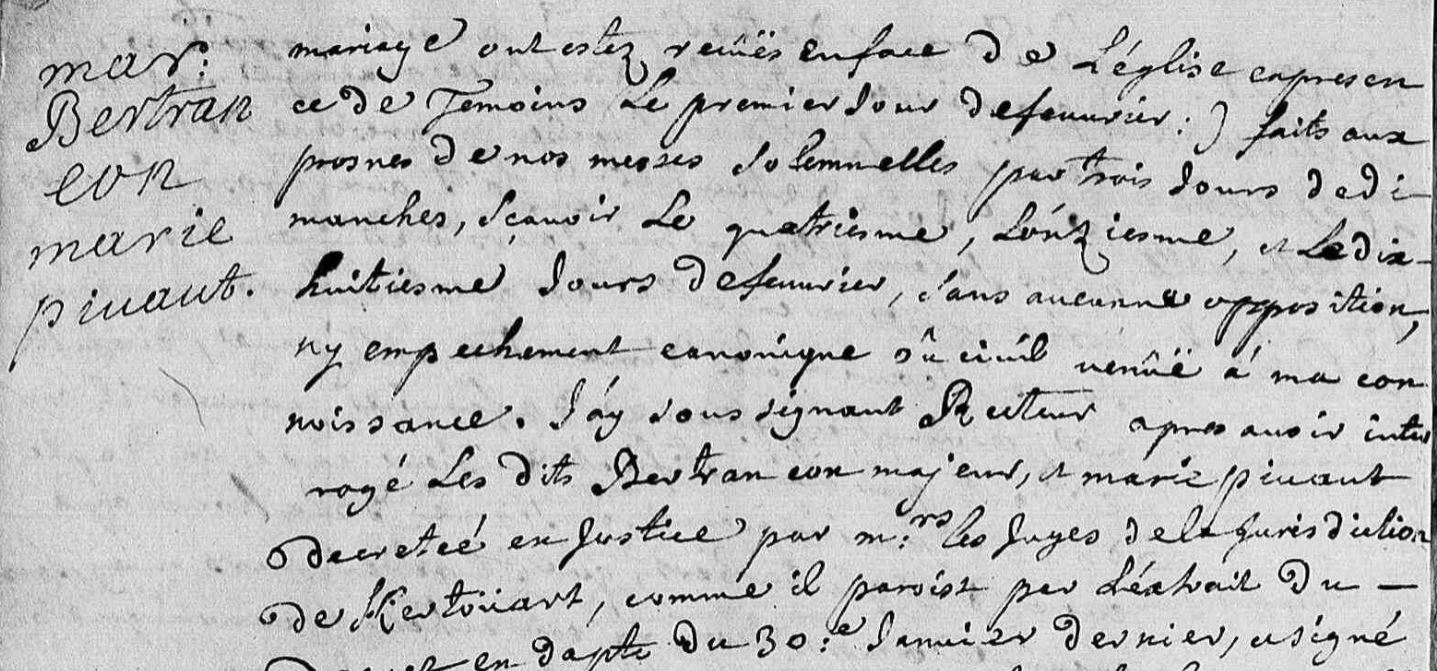 mar:
Bertran
eon
marie
pivaut.
mariage ont estez receües en face de L'église en presen
ce de Temoins Le premier Jour de feuvrier :) faits aux
prosnes de nos messes solemnelles par trois Jours de di-
manches, sçavoir Le quatriesme, L'onziesme, et Le dix-
huitiesme Jours de feuvrier, sans aucunne opposition,
ny empechement canonique où civil venüe à ma con
noissance. J'ay soussignant Recteur apres avoir inter
rogé Les dits Bertran eon majeur, et marie pivaut
decreteé en Justice par m:rs les Juges de la Jurisdiction
de Kertoüart, comme il paroist par L'éxtrait du —
en dapte du 30:e Janvier dernier, et signé